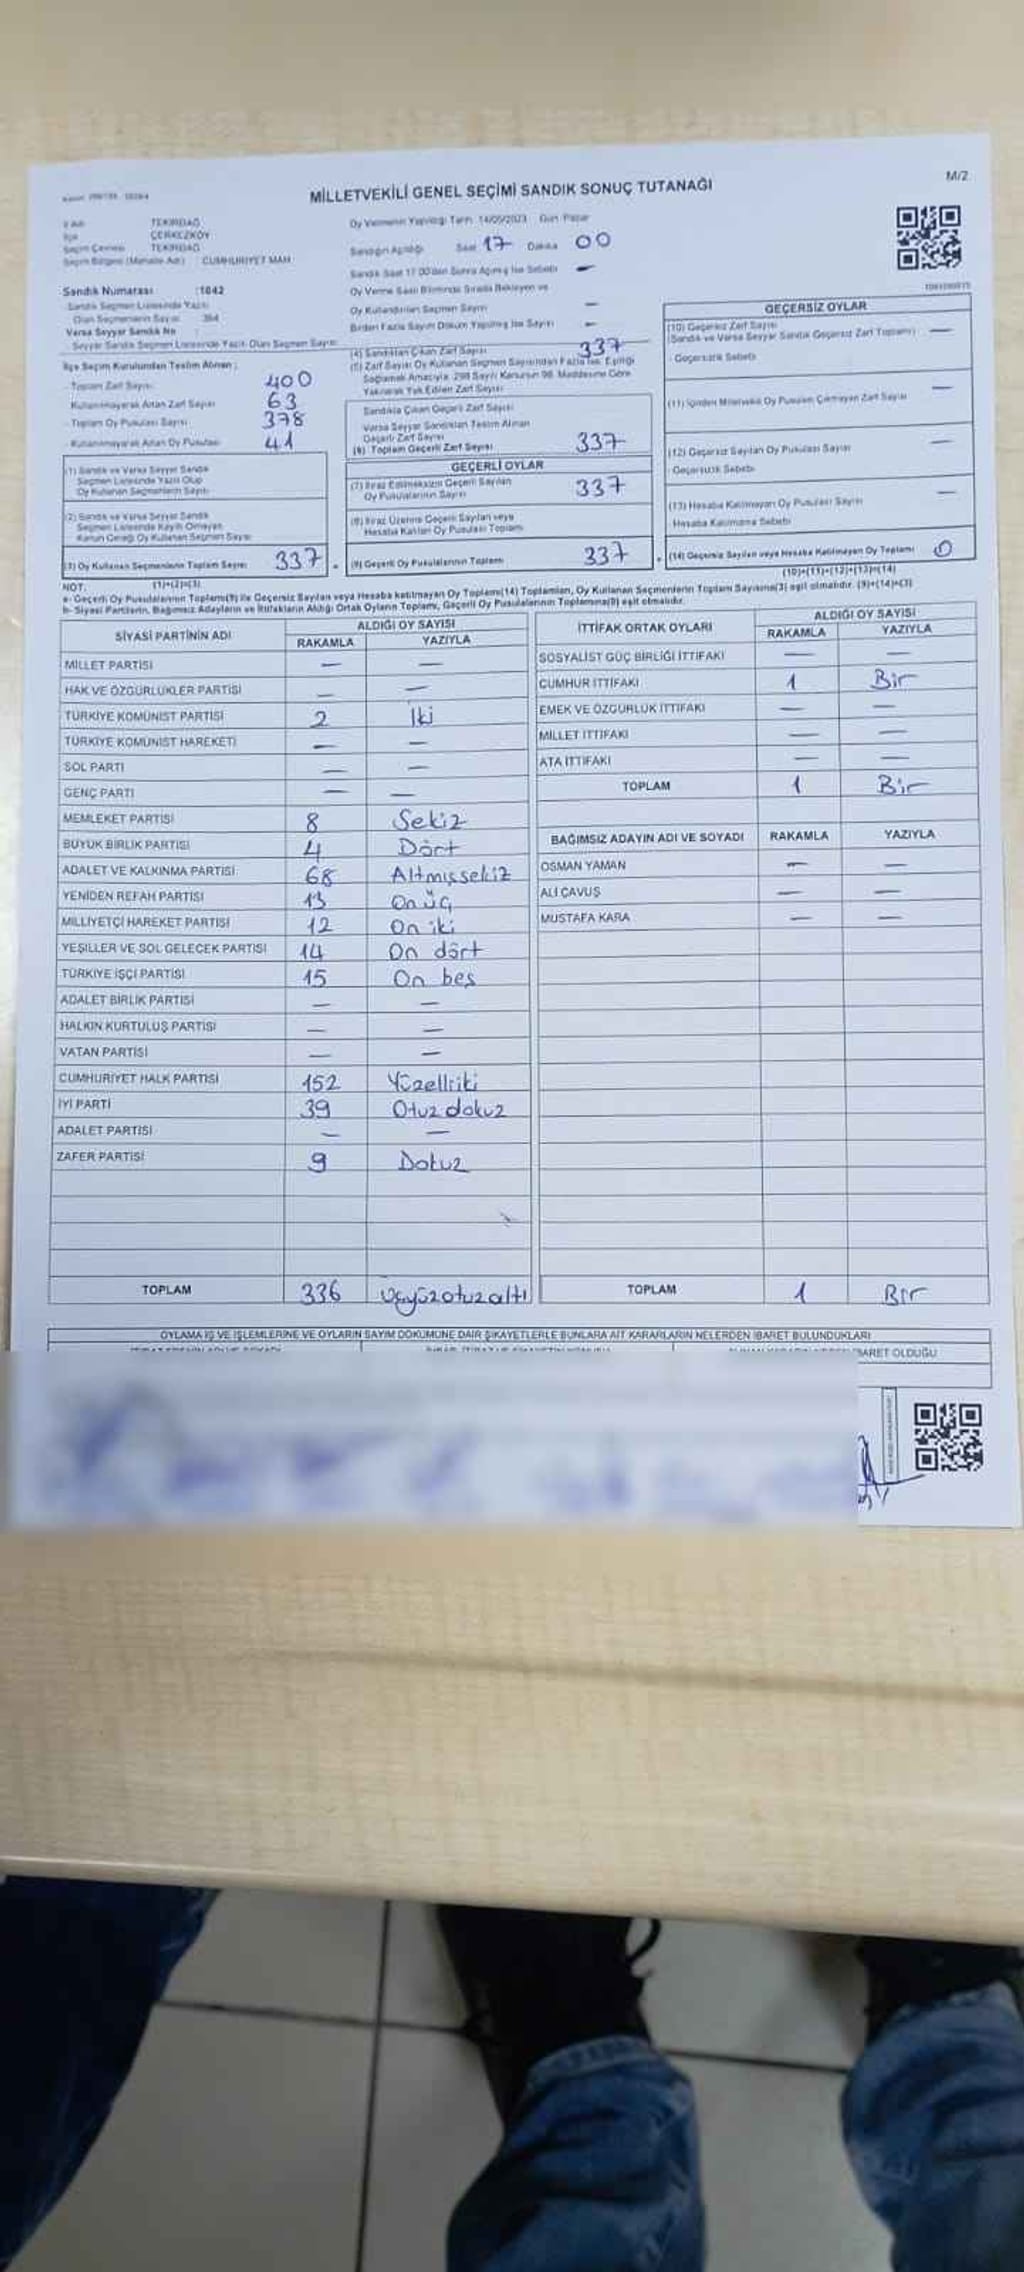 MİLLETVEKİLİ GENEL SEÇİMİ SANDIK SONUÇ TUTANAĞI
M/2
İli Adı TEKİRDAĞ
İlçe ÇERKEZKÖY
Seçim Çevresi TEKİRDAĞ
Seçim Bölgesi (Mahalle Adı) CUMHURİYET MAH
Sandık Numarası :1042
Sandık Seçmen Listesinde Yazılı
Olan Seçmenlerin Sayısı
Varsa Seyyar Sandık No :
Seyyar Sandık Seçmen Listesinde Yazılı Olan Seçmen Sayısı
Oy Vermenin Yapıldığı Tarih 14/05/2023 Gün Pazar
Sandığın Açıldığı Saat 17 Dakika 00
Sandık Saat 17:00'den Sonra Açılmış İse Sebebi —
Oy Verme Saati Bitiminde Sırada Bekleyen ve
Oy Kullandırılan Seçmen Sayısı —
Birden Fazla Sayım Döküm Yapılmış İse Sayısı —
İlçe Seçim Kurulundan Teslim Alınan :
- Toplam Zarf Sayısı 400
- Kullanılmayarak Artan Zarf Sayısı 63
- Toplam Oy Pusulası Sayısı 378
- Kullanılmayarak Artan Oy Pusulası 41
(1) Sandık ve Varsa Seyyar Sandık
Seçmen Listesinde Yazılı Olup
Oy Kullanan Seçmenlerin Sayısı
(2) Sandık ve Varsa Seyyar Sandık
Seçmen Listesinde Kayıtlı Olmayan
Kanun Gereği Oy Kullanan Seçmen Sayısı
(3) Oy Kullanan Seçmenlerin Toplam Sayısı 337
(1)+(2)=(3)
(4) Sandıktan Çıkan Zarf Sayısı 337
(5) Zarf Sayısı Oy Kullanan Seçmen Sayısından Fazla İse, Eşitliği
Sağlamak Amacıyla, 298 Sayılı Kanunun 98. Maddesine Göre
Yakılarak Yok Edilen Zarf Sayısı
Sandıkta Çıkan Geçerli Zarf Sayısı
Varsa Seyyar Sandıktan Teslim Alınan
Geçerli Zarf Sayısı
(6) Toplam Geçerli Zarf Sayısı 337
GEÇERLİ OYLAR
(7) İtiraz Edilmeksizin Geçerli Sayılan
Oy Pusulalarının Sayısı 337
(8) İtiraz Üzerine Geçerli Sayılan veya
Hesaba Katılan Oy Pusulası Toplamı
(9) Geçerli Oy Pusulalarının Toplamı 337
GEÇERSİZ OYLAR
(10) Geçersiz Zarf Sayısı
(Sandık ve Varsa Seyyar Sandık Geçersiz Zarf Toplamı) —
- Geçersizlik Sebebi
(11) İçinden Milletvekili Oy Pusulası Çıkmayan Zarf Sayısı —
(12) Geçersiz Sayılan Oy Pusulası Sayısı —
Geçersizlik Sebebi
(13) Hesaba Katılmayan Oy Pusulası Sayısı —
Hesaba Katılmama Sebebi
(14) Geçersiz Sayılan veya Hesaba Katılmayan Oy Toplamı 0
(10)+(11)+(12)+(13)=(14)
NOT:
a- Geçerli Oy Pusulalarının Toplamı(9) ile Geçersiz Sayılan veya Hesaba katılmayan Oy Toplamı(14) Toplamları, Oy Kullanan Seçmenlerin Toplam Sayısına(3) eşit olmalıdır. (9)+(14)=(3)
b- Siyasi Partilerin, Bağımsız Adayların ve İttifakların Aldığı Ortak Oyların Toplamı, Geçerli Oy Pusulalarının Toplamına(9) eşit olmalıdır.
SİYASİ PARTİNİN ADI ALDIĞI OY SAYISI
RAKAMLA YAZIYLA
MİLLET PARTİSİ — —
HAK VE ÖZGÜRLÜKLER PARTİSİ — —
TÜRKİYE KOMÜNİST PARTİSİ 2 İki
TÜRKİYE KOMÜNİST HAREKETİ — —
SOL PARTİ — —
GENÇ PARTİ — —
MEMLEKET PARTİSİ 8 Sekiz
BÜYÜK BİRLİK PARTİSİ 4 Dört
ADALET VE KALKINMA PARTİSİ 68 Altmışsekiz
YENİDEN REFAH PARTİSİ 13 On üç
MİLLİYETÇİ HAREKET PARTİSİ 12 On iki
YEŞİLLER VE SOL GELECEK PARTİSİ 14 On dört
TÜRKİYE İŞÇİ PARTİSİ 15 On beş
ADALET BİRLİK PARTİSİ — —
HALKIN KURTULUŞ PARTİSİ — —
VATAN PARTİSİ — —
CUMHURİYET HALK PARTİSİ 152 Yüzelliiki
İYİ PARTİ 39 Otuz dokuz
ADALET PARTİSİ — —
ZAFER PARTİSİ 9 Dokuz
TOPLAM 336 Üçyüzotuzaltı
İTTİFAK ORTAK OYLARI ALDIĞI OY SAYISI
RAKAMLA YAZIYLA
SOSYALİST GÜÇ BİRLİĞİ İTTİFAKI — —
CUMHUR İTTİFAKI 1 Bir
EMEK VE ÖZGÜRLÜK İTTİFAKI — —
MİLLET İTTİFAKI — —
ATA İTTİFAKI — —
TOPLAM 1 Bir
BAĞIMSIZ ADAYIN ADI VE SOYADI RAKAMLA YAZIYLA
OSMAN YAMAN — —
ALİ ÇAVUŞ — —
MUSTAFA KARA — —
TOPLAM 1 Bir
OYLAMA İŞ VE İŞLEMLERİNE VE OYLARIN SAYIM DÖKÜMÜNE DAİR ŞİKAYETLERLE BUNLARA AİT KARARLARIN NELERDEN İBARET BULUNDUKLARI
İBARET OLDUĞU